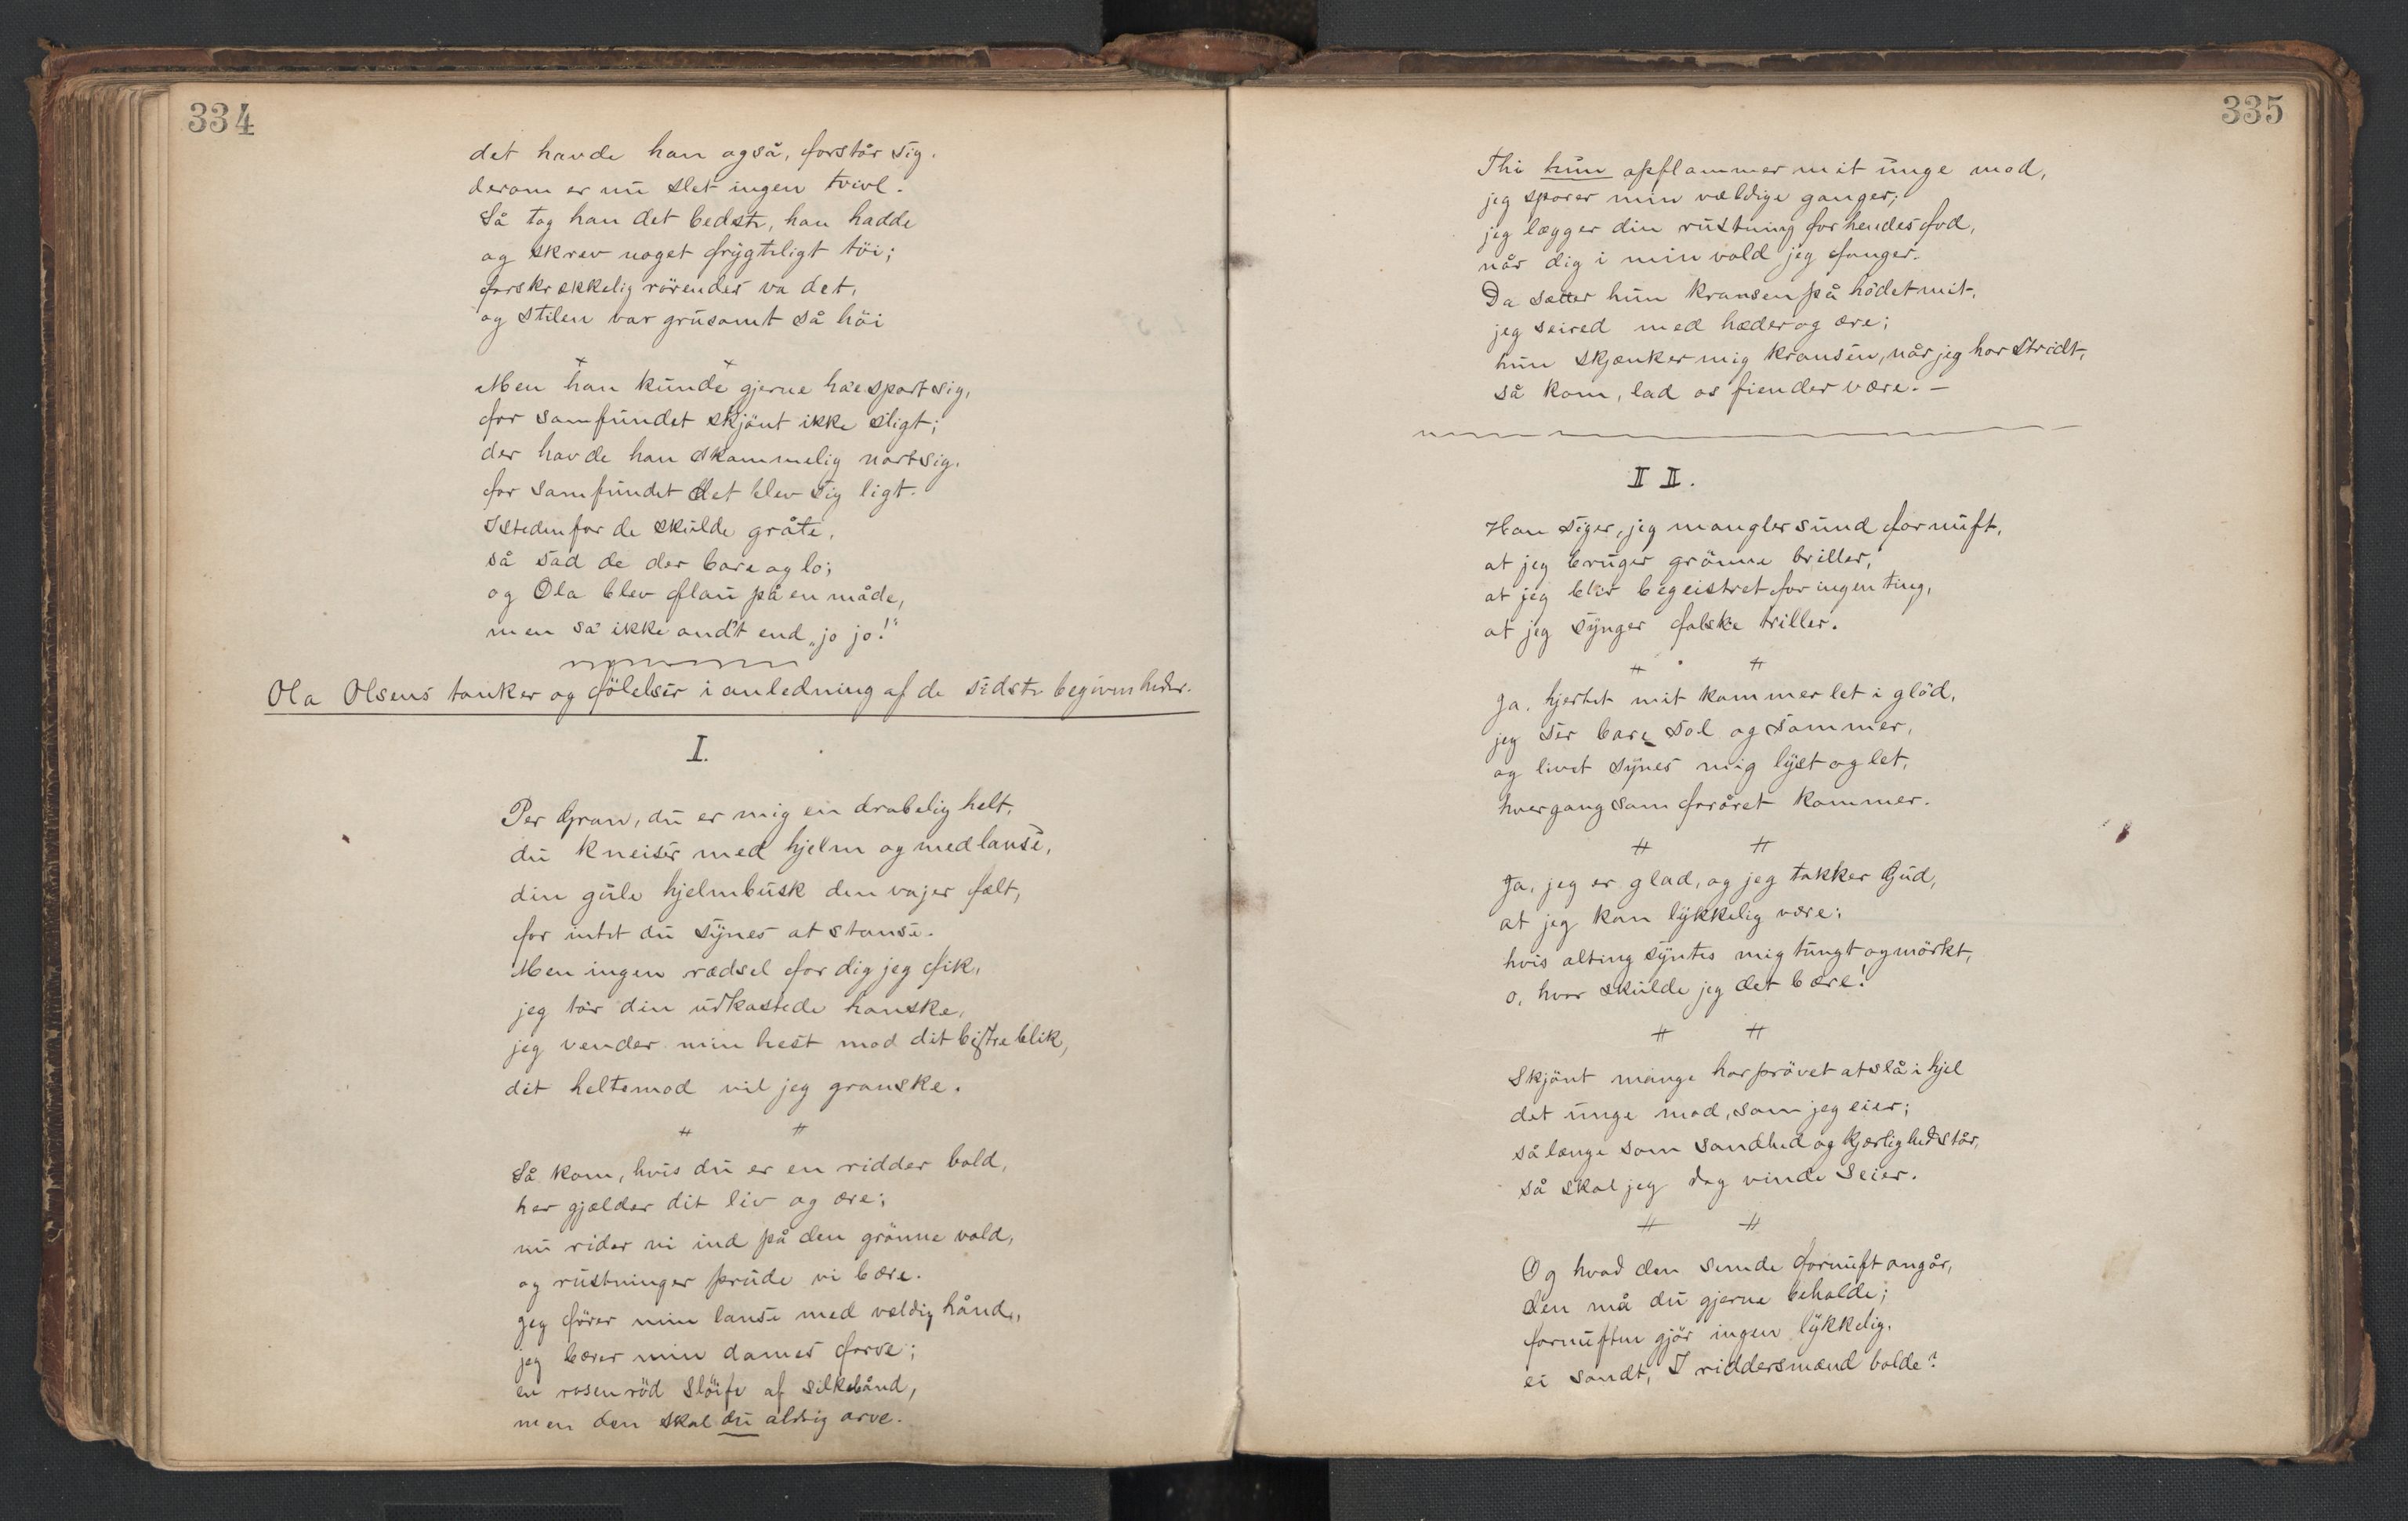 334
det havde han også, forstår sig.
derom er nu slet ingen tvivl.
Så tog han det bedste, han hadde
og skrev noget frygteligt töi;
forskrækkelig rörendes va det,
og stilen var grusomt så höi
Men han kunde gjerne ha'e spart sig,
for samfundet skjönt ikke sligt;
der havde han skammelig nart sig.
for samfundet det blev sig ligt.
Istedenfor de skulde gråte,
så sad de der bare og lo;
og Ola blev flau på en måde,
men sa' ikke and't end „jo jo!"
Ola Olsens tanker og fölelser i anledning af de sidste begivenheder.
I.
Per Gran, du er mig en drabelig helt,
du kneiser med hjelm og med lanse,
din gule hjelmbusk den vajer fælt,
for intet du synes at stanse.
Men ingen rædsel for dig jeg fik,
jeg tör din udkastede hanske,
jeg vender min hest mod dit bistre blik,
dit heltemod vil jeg granske.
Så kom, hvis du er en ridder bold,
her gjælder dit liv og ære;
nu rider vi ind på den grönne vold,
og rustninger prude vi bære.
Jeg förer min lanse med vældig hånd,
jeg bærer min dames farve;
en rosenröd slöife af silkebånd,
men den skal du aldrig arve.
335
Thi hun opflammer mit unge mod,
jeg sporer min vældige ganger;
jeg lægger din rustning for hendes fod,
når dig i min vold jeg fanger.
Da sætter hun kransen på hödet mit,
jeg seired med hæder og ære;
hun skjænker mig kransen, når jeg har stridt,
så kom, lad os fiender være. –
II.
Han siger, jeg mangler sund fornuft,
at jeg bruger grönne briller,
at jeg blir begeistret for ingen ting,
at jeg synger falske triller.
Ja, hjertet mit kommer let i glöd,
jeg ser bare sol og sommer,
og livet synes mig lyst og let,
hvergang som foråret kommer.
Ja, jeg er glad, og jeg takker Gud,
at jeg kan lykkelig være;
hvis alting syntes mig tungt og mörkt,
o, hvor skulde jeg det bære!
Skjönt mange har prövet at slå i hjel
det unge mod, som jeg eier;
så længe som sandhed og kjærlighed står,
så skal jeg dog vinde seier.
Og hvad den sunde fornuft angår,
den må du gjerne beholde;
fornuften gjör ingen lykkelig,
ei sandt, I riddersmænd bolde?